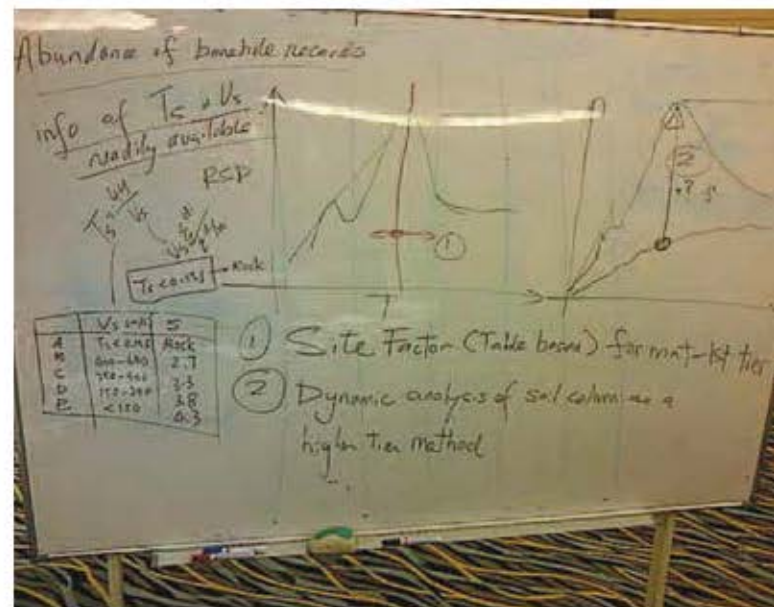 Abundance of borehole records
info of Ts & Vs
readily available
RSP
Ts = 4H
Vs
Ts < 0.15s
Rock
1
2
T
Vs S
A Ts < 0.15 Rock
B 2.7
C 3.3
D 3.8
E <150 4.3
① Site Factor (Table based) format-1st tier
② Dynamic analysis of soil column as a
higher Tier method